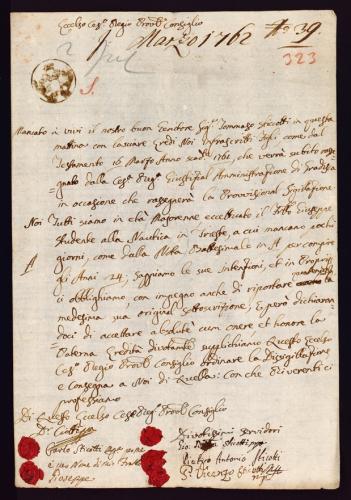 Eccelso Ces.º Regio Provl Consiglio
Marzo 1762 Nº 39
323
S.
Mancato à vivi il nostro buon Genitore Sigr. Tommaso Sticotti in questa
matina con lasciare Eredi Noi Infrascritti figli, come dal
Testamento 16 Marzo Anno 1761, che verrà subito conse=
gnato dalla Cesª Regª Amministrazione di Gradisca
in occasione che rassegnerà la Provvisional
Noi Tutti siamo in età Magiorenne eccettuato il Fratto Giuseppe
studente alla Nautica in Trieste, a cui mancano pochi
giorni, come dalla Nota Battesimale in A per compire
A
gli Anni 24, Sappiamo le sue intenzioni, et in Proprio
ci obblighiamo con impegno anche di riportare
medesima sua original sottoscrizione, E però dichiaran=
doci di accettare absolute cum onere et honore la
Paterna Eredità divotamte supplichiamo Questo Eccelso
Ces.º Regio Provl Consiglio ordinare la Disigillazione
e Consegna a Noi di Quella: Con che Riverenti ci
professiamo
Di Questo Eccelso Ces.º Regº Provl Consiglio
Di
Divotissimi Servidori
Paolo Sticotti
Sticotti
e per Nome di mio Fratto
Pietro Antonio Sticotti
Gioseppe
Vicenzo Sticotti